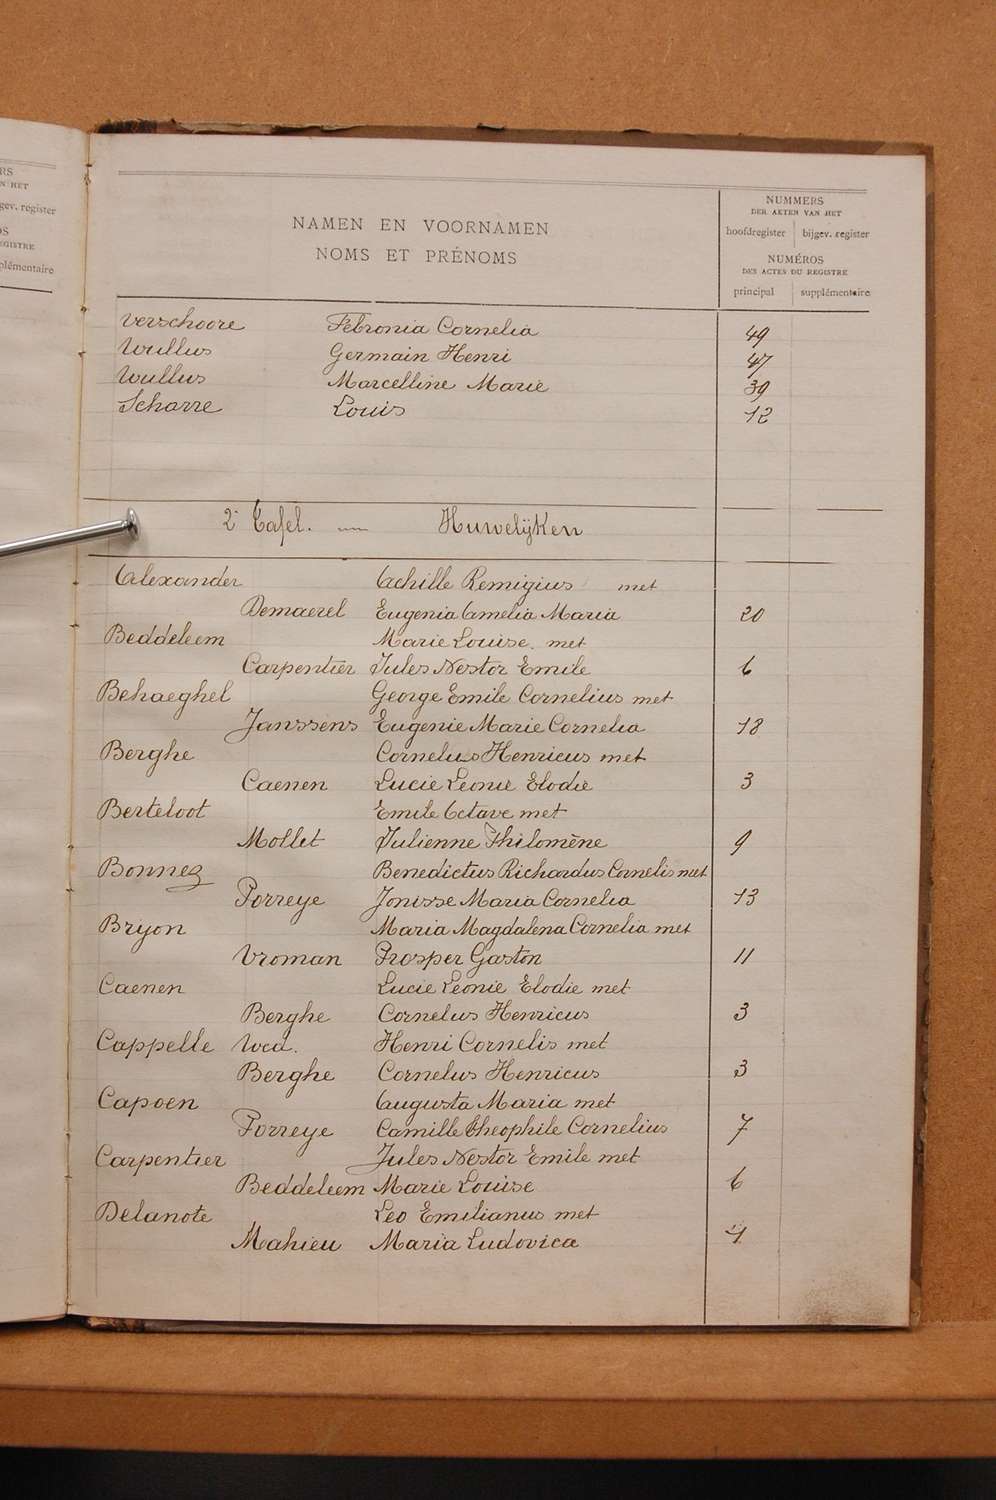 RS
N HET
gev. register
OS
EGISTRE
plémentaire
NAMEN EN VOORNAMEN
NOMS ET PRÉNOMS
NUMMERS
DER AKTEN VAN HET
hoofdregister bijgev. register
NUMÉROS
DES ACTES DU REGISTRE
principal supplémentaire
Verschoore Fébronia Cornelia 49
Wullus Germain Henri 47
Wullus Marcelline Marie 39
Scharre Louis 12
2e Tafel. — Huwelijken
Alexander Achille Remigius met
Demaerel Eugenia Amelia Maria 20
Beddeleem Marie Louise met
Carpentier Jules Nestor Emile 6
Behaeghel George Emile Cornelius met
Janssens Eugenie Marie Cornelia 18
Berghe Cornelus Henricus met
Caenen Lucie Leonie Elodie 3
Berteloot Emile Octave met
Mollet Julienne Philomène 9
Bonnez Benedictus Richardus Cornelis met
Porreye Jonisse Maria Cornelia 13
Bryon Maria Magdalena Cornelia met
Vroman Prosper Gaston 11
Caenen Lucie Leonie Elodie met
Berghe Cornelus Henricus 3
Cappelle Henri Cornelis met
Berghe Cornelus Henricus 3
Capoen Augusta Maria met
Porreye Camille Theophile Cornelius 7
Carpentier Jules Nestor Emile met
Beddeleem Marie Louise 6
Delanote Leo Emilianus met
Mahieu Maria Ludovica 4